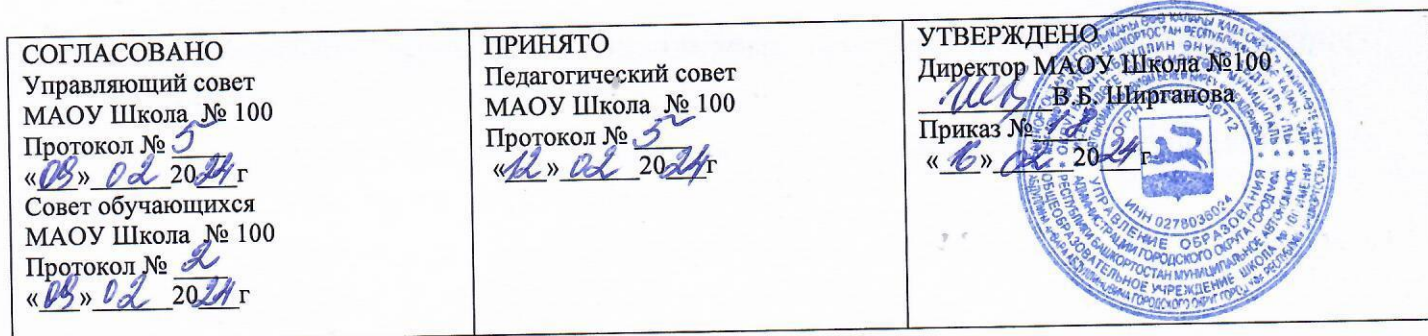 СОГЛАСОВАНО
Управляющий совет
МАОУ Школа № 100
Протокол № 5
«09» 02 2024г
Совет обучающихся
МАОУ Школа № 100
Протокол № 2
«09» 02 2024 г
ПРИНЯТО
Педагогический совет
МАОУ Школа № 100
Протокол № 5
«12» 02 2024г
УТВЕРЖДЕНО
Директор МАОУ Школа №100
В.Б. Ширганова
Приказ № 78
«16» 02 2024 г
ИНН 0278038024
УПРАВЛЕНИЕ ОБРАЗОВАНИЯ
АДМИНИСТРАЦИИ ГОРОДСКОГО ОКРУГА ГОРОД УФА
РЕСПУБЛИКИ БАШКОРТОСТАН МУНИЦИПАЛЬНОЕ АВТОНОМНОЕ
ОБЩЕОБРАЗОВАТЕЛЬНОЕ УЧРЕЖДЕНИЕ ШКОЛА №